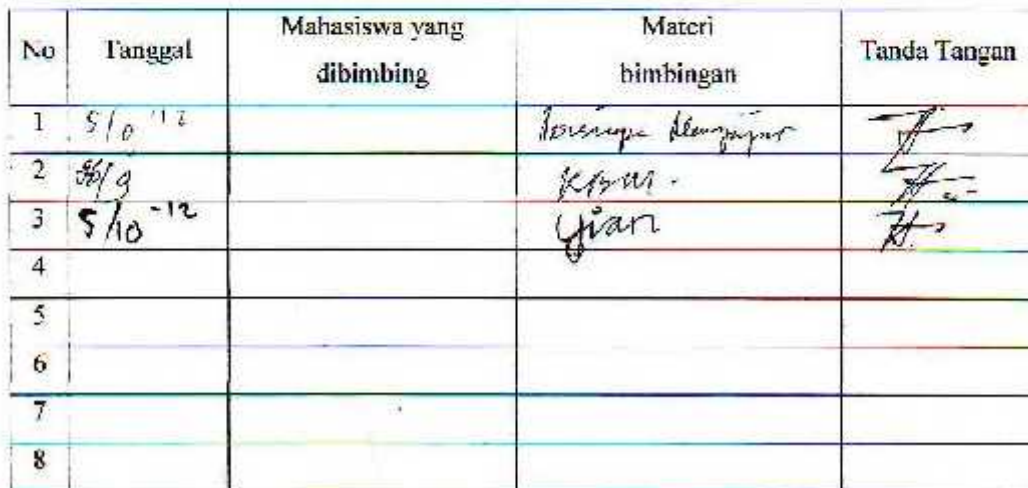 No Tanggal Mahasiswa yang dibimbing Materi bimbingan Tanda Tangan
1 5/0 '12
2 /9 KBM.
3 5/10 -12 Ujian
4
5
6
7
8